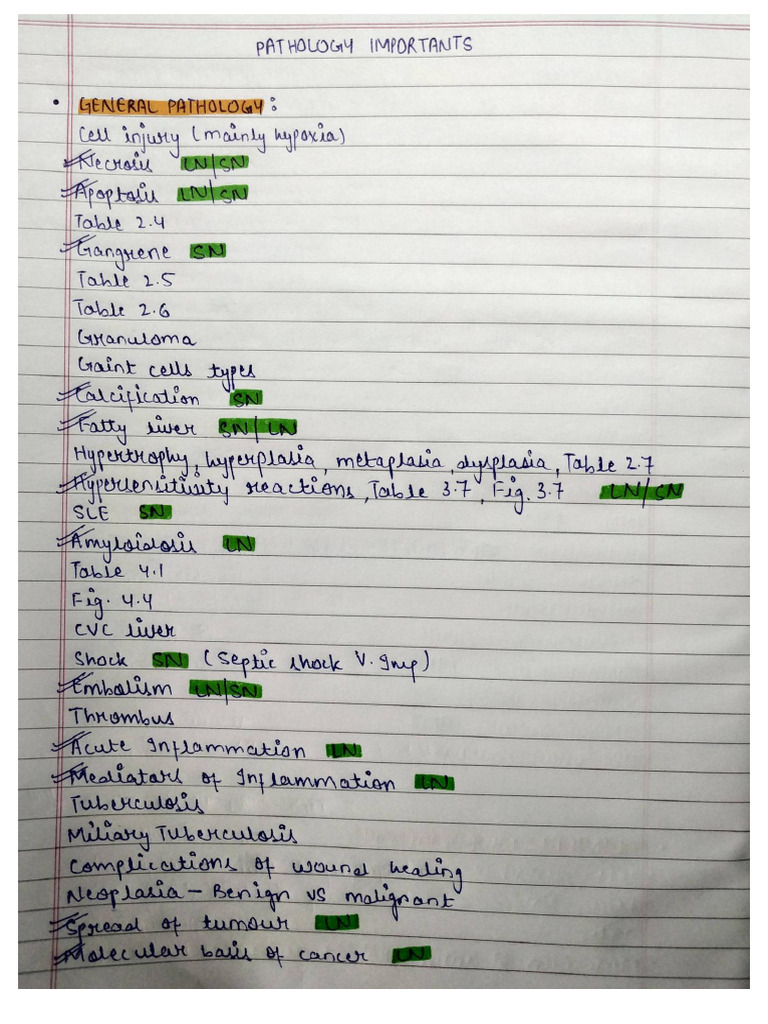 PATHOLOGY IMPORTANTS
• GENERAL PATHOLOGY:
Cell injury (mainly hypoxia)
Necrosis LN/SN
Apoptosis LN/SN
Table 2.4
Gangrene SN
Table 2.5
Table 2.6
Granuloma
Gaint cells types
Calcification SN
Fatty liver SN/LN
Hypertrophy, hyperplasia, metaplasia, dysplasia, Table 2.7
Hypersensitivity reactions, Table 3.7, Fig. 3.7 LN/SN
SLE SN
Amyloidosis LN
Table 4.1
Fig. 4.4
CVC liver
Shock SN (Septic shock V. Imp)
Embolism LN/SN
Thrombus
Acute Inflammation LN
Mediators of Inflammation LN
Tuberculosis
Miliary Tuberculosis
Complications of wound healing
Neoplasia - Benign vs malignant
Spread of tumour LN
Molecular basis of cancer LN